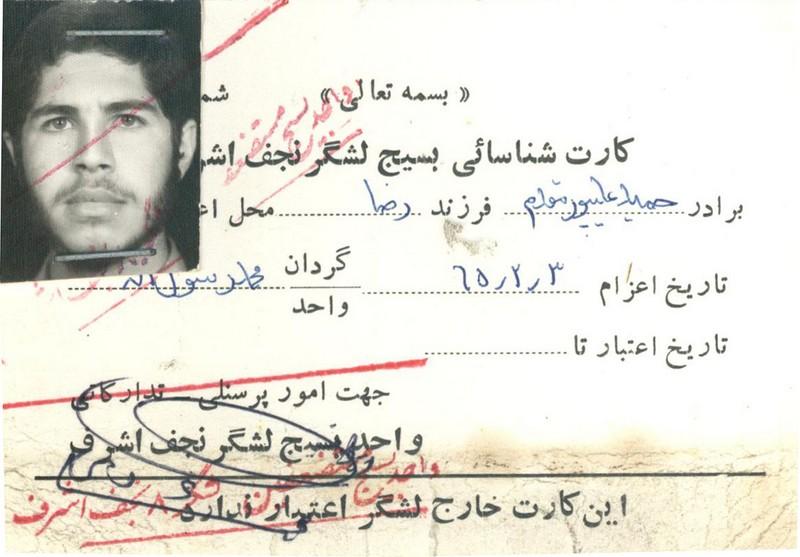 « بسمه تعالی » شم
کارت شناسائی بسیج لشگر نجف اشر
برادر حمید علیپور مقدم فرزند رضا محل اع
تاریخ اعزام ٦٥٫٢٫٣ گردان واحد محمد رسول اله
تاریخ اعتبار تا
جهت امور پرسنلی - تدارکاتی
واحد بسیج لشگر نجف اشرف
این کارت خارج لشگر اعتبار ندارد
واحد بسیج لشگر ۸ نجف اشرف